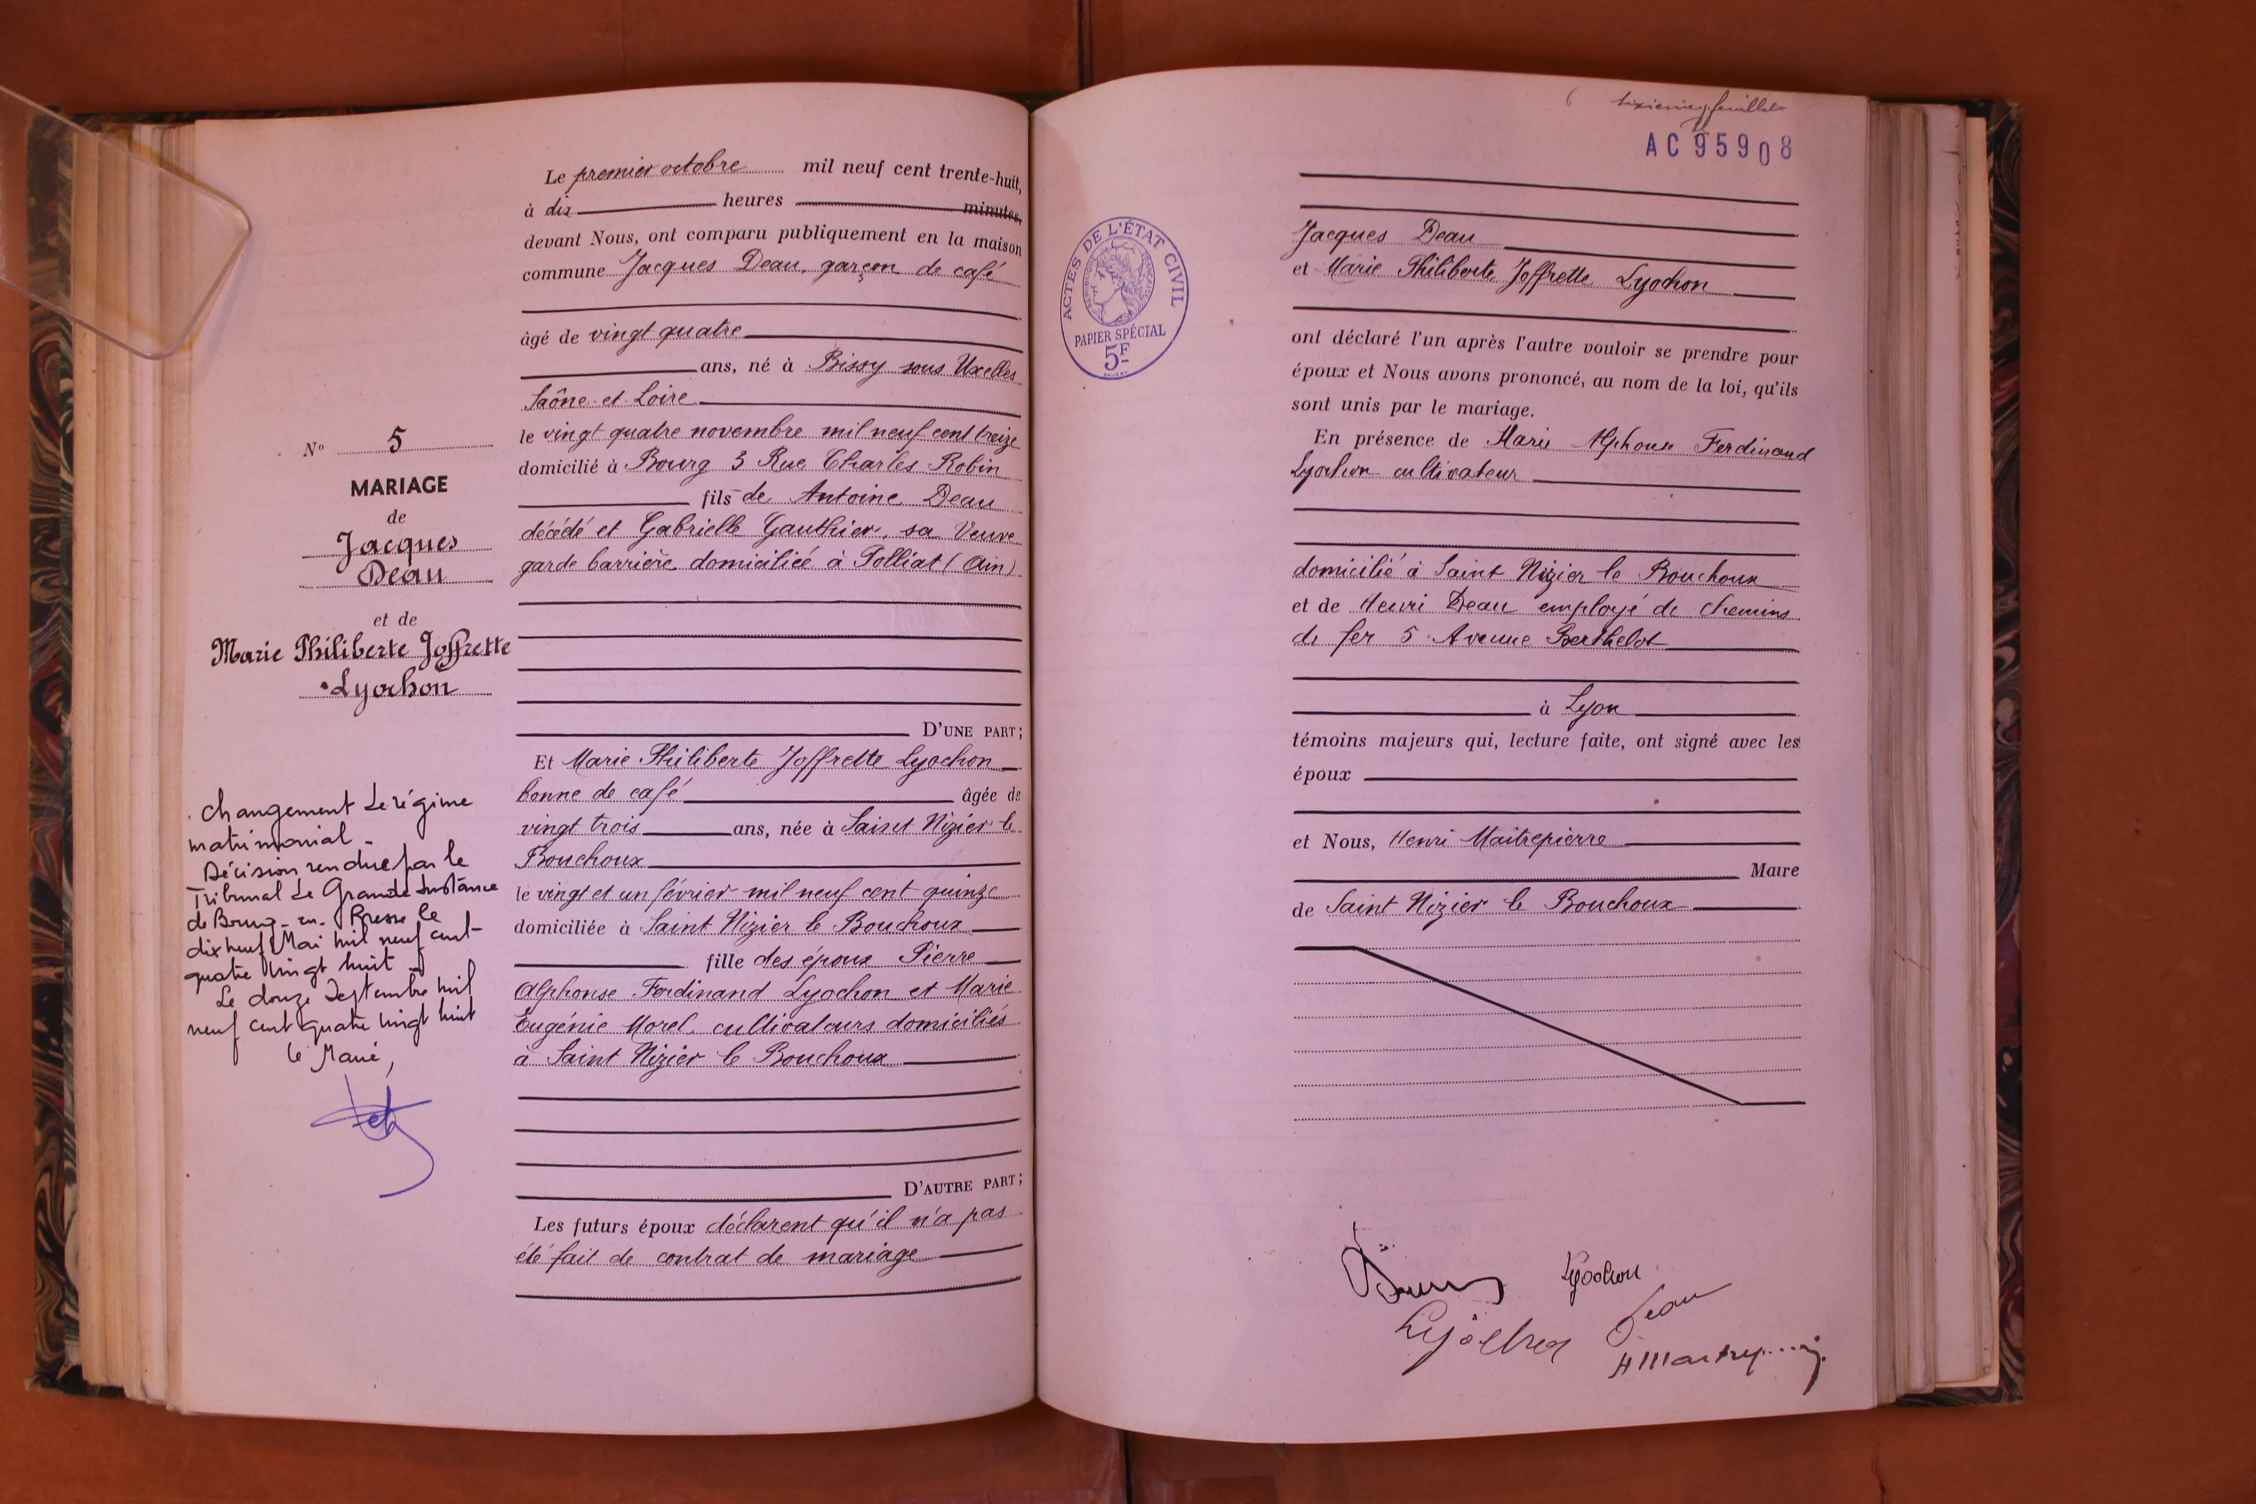 Le premier octobre mil neuf cent trente-huit,
à dix heures minutes,
devant Nous, ont comparu publiquement en la maison
commune Jacques Deau, garçon de café
âgé de vingt quatre
ans, né à Bissy sous Uxelles
Saône et Loire
le vingt quatre novembre mil neuf cent treize
domicilié à Bourg 3 Rue Charles Robin
fils de Antoine Deau
décédé et Gabrielle Gauthier, sa Veuve
garde barrière domiciliée à Polliat (Ain)
D'UNE PART;
Et Marie Philiberte Joffrette Lyochon
bonne de café âgée de
vingt trois ans, née à Saint Nizier le
Bouchoux
le vingt et un février mil neuf cent quinze
domiciliée à Saint Nizier le Bouchoux
fille des époux Pierre
Alphonse Ferdinand Lyochon et Marie
Eugénie Morel, cultivateurs domiciliés
à Saint Nizier le Bouchoux
D'AUTRE PART;
Les futurs époux déclarent qu'il n'a pas
été fait de contrat de mariage
No 5
MARIAGE
de
Jacques
Deau
et de
Marie Philiberte Joffrette
Lyochon
Changement de régime
matrimonial -
Décision rendue par le
Tribunal de Grande Instance
de Bourg-en-Bresse le
dix neuf Mai mil neuf cent-
quatre vingt huit -
Le douze Septembre mil
neuf cent quatre vingt huit
le Maire,
6 sixième feuillet
AC 95908
ACTES DE L'ÉTAT CIVIL
PAPIER SPÉCIAL
5F
Jacques Deau
et Marie Philiberte Joffrette Lyochon
ont déclaré l'un après l'autre vouloir se prendre pour
époux et Nous avons prononcé, au nom de la loi, qu'ils
sont unis par le mariage.
En présence de Marie Alphonse Ferdinand
Lyochon cultivateur
domicilié à Saint Nizier le Bouchoux
et de Henri Deau employé de chemins
de fer 5 Avenue Berthelot
à Lyon
témoins majeurs qui, lecture faite, ont signé avec les
époux
et Nous, Henri Maitrepierre
Maire
de Saint Nizier le Bouchoux
Lyochon
Deau